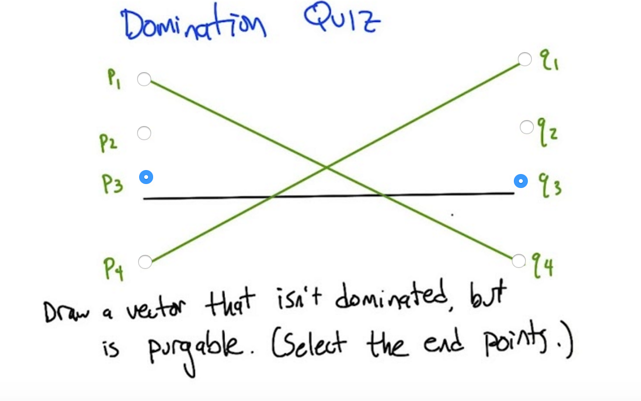 Domination QUIZ
P1 q1
P2 q2
P3 q3
P4 q4
Draw a vector that isn't dominated, but
is purgable. (Select the end points.)